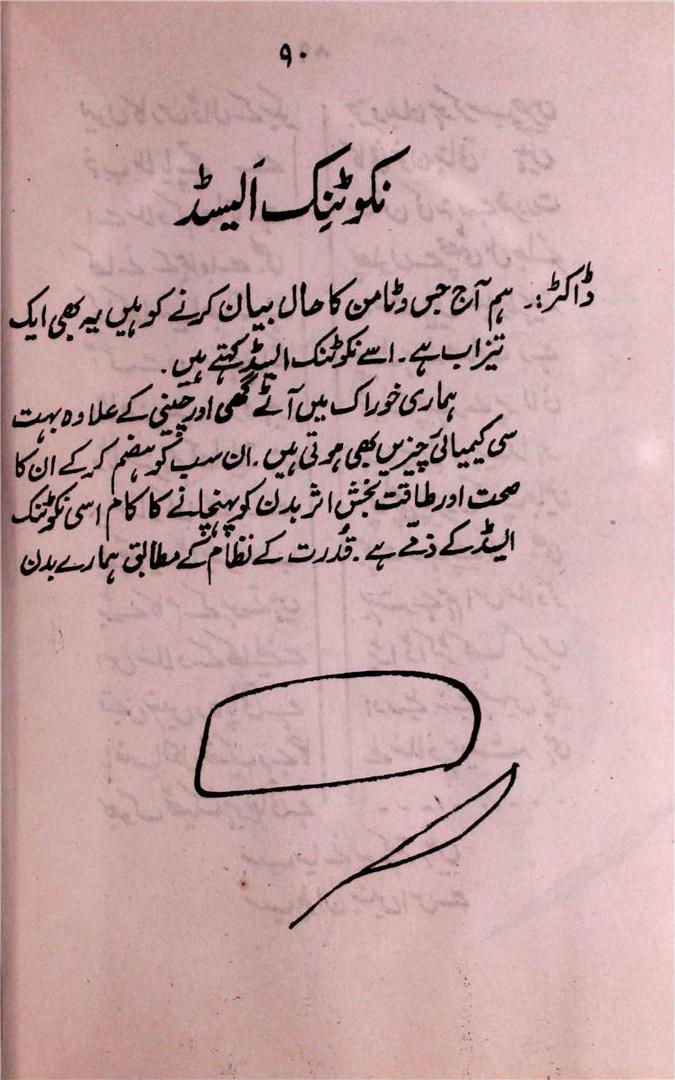 ۹۰
نکوٹِنک اَیسڈ
ڈاکٹر:۔ ہم آج جس وٹامن کا حال بیان کرنے کو ہیں یہ بھی ایک
تیزاب ہے۔ اسے نکوٹنک ایسڈ کہتے ہیں۔
ہماری خوراک میں آٹے گھی اور چینی کے علاوہ بہت
سی کیمیائی چیزیں بھی ہوتی ہیں۔ ان سب کو ہضم کرکے ان کا
صحت اور طاقت بخش اثر بدن کو پہنچانے کا کام اسی نکوٹنک
ایسڈ کے ذمّے ہے۔ قُدرت کے نظام کے مطابق ہمارے بدن